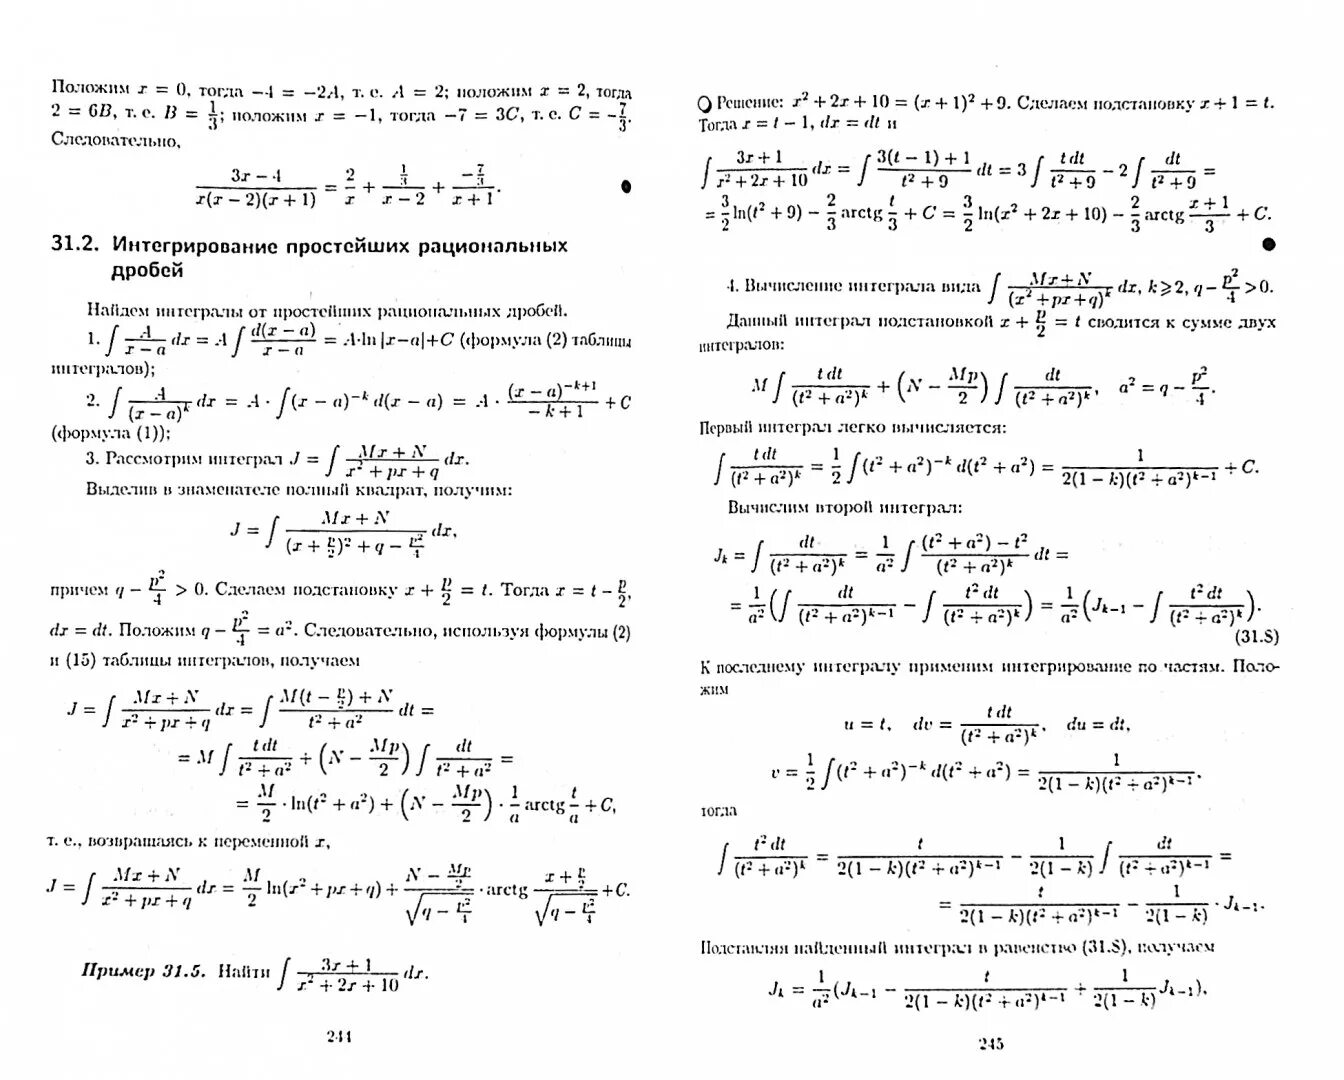 Положим x = 0, тогда −4 = −2A, т. е. A = 2; положим x = 2, тогда
2 = 6B, т. е. B = 1/3; положим x = −1, тогда −7 = 3C, т. е. C = −7/3.
Следовательно,
(3x − 4)/(x(x − 2)(x + 1)) = 2/x + (1/3)/(x − 2) + (−7/3)/(x + 1). ●
31.2. Интегрирование простейших рациональных
дробей
Найдем интегралы от простейших рациональных дробей.
1. ∫ A/(x − a) dx = A ∫ d(x − a)/(x − a) = A·ln |x−a|+C (формула (2) таблицы
интегралов);
2. ∫ A/(x − a)^k dx = A · ∫(x − a)^{−k} d(x − a) = A · (x − a)^{−k+1}/(−k + 1) + C
(формула (1));
3. Рассмотрим интеграл J = ∫ (Mx + N)/(x² + px + q) dx.
Выделив в знаменателе полный квадрат, получим:
J = ∫ (Mx + N)/((x + p/2)² + q − p²/4) dx,
причем q − p²/4 > 0. Сделаем подстановку x + p/2 = t. Тогда x = t − p/2,
dx = dt. Положим q − p²/4 = a². Следовательно, используя формулы (2)
и (15) таблицы интегралов, получаем
J = ∫ (Mx + N)/(x² + px + q) dx = ∫ (M(t − p/2) + N)/(t² + a²) dt =
= M ∫ t dt/(t² + a²) + (N − Mp/2) ∫ dt/(t² + a²) =
= M/2 · ln(t² + a²) + (N − Mp/2) · 1/a arctg t/a + C,
т. е., возвращаясь к переменной x,
J = ∫ (Mx + N)/(x² + px + q) dx = M/2 ln(x² + px + q) + (N − Mp/2)/√(q − p²/4) · arctg (x + p/2)/√(q − p²/4) + C.
Пример 31.5. Найти ∫ (3x + 1)/(x² + 2x + 10) dx.
244
Решение: x² + 2x + 10 = (x + 1)² + 9. Сделаем подстановку x + 1 = t.
Тогда x = t − 1, dx = dt и
∫ (3x + 1)/(x² + 2x + 10) dx = ∫ (3(t − 1) + 1)/(t² + 9) dt = 3 ∫ t dt/(t² + 9) − 2 ∫ dt/(t² + 9) =
= 3/2 ln(t² + 9) − 2/3 arctg t/3 + C = 3/2 ln(x² + 2x + 10) − 2/3 arctg (x + 1)/3 + C.
●
4. Вычисление интеграла вида ∫ (Mx + N)/(x² + px + q)^k dx, k ⩾ 2, q − p²/4 > 0.
Данный интеграл подстановкой x + p/2 = t сводится к сумме двух
интегралов:
M ∫ t dt/(t² + a²)^k + (N − Mp/2) ∫ dt/(t² + a²)^k, a² = q − p²/4.
Первый интеграл легко вычисляется:
∫ t dt/(t² + a²)^k = 1/2 ∫(t² + a²)^{−k} d(t² + a²) = 1/(2(1 − k)(t² + a²)^{k−1}) + C.
Вычислим второй интеграл:
J_k = ∫ dt/(t² + a²)^k = 1/a² ∫ ((t² + a²) − t²)/(t² + a²)^k dt =
= 1/a² (∫ dt/(t² + a²)^{k−1} − ∫ t² dt/(t² + a²)^k) = 1/a² (J_{k−1} − ∫ t² dt/(t² + a²)^k).
(31.8)
К последнему интегралу применим интегрирование по частям. Поло-
жим
u = t, dv = t dt/(t² + a²)^k, du = dt,
v = 1/2 ∫(t² + a²)^{−k} d(t² + a²) = 1/(2(1 − k)(t² + a²)^{k−1}),
тогда
∫ t² dt/(t² + a²)^k = t/(2(1 − k)(t² + a²)^{k−1}) − 1/(2(1 − k)) ∫ dt/(t² + a²)^{k−1} =
= t/(2(1 − k)(t² + a²)^{k−1}) − 1/(2(1 − k)) · J_{k−1}.
Подставляя найденный интеграл в равенство (31.8), получаем
J_k = 1/a² (J_{k−1} − t/(2(1 − k)(t² + a²)^{k−1}) + 1/(2(1 − k)) J_{k−1}),
245